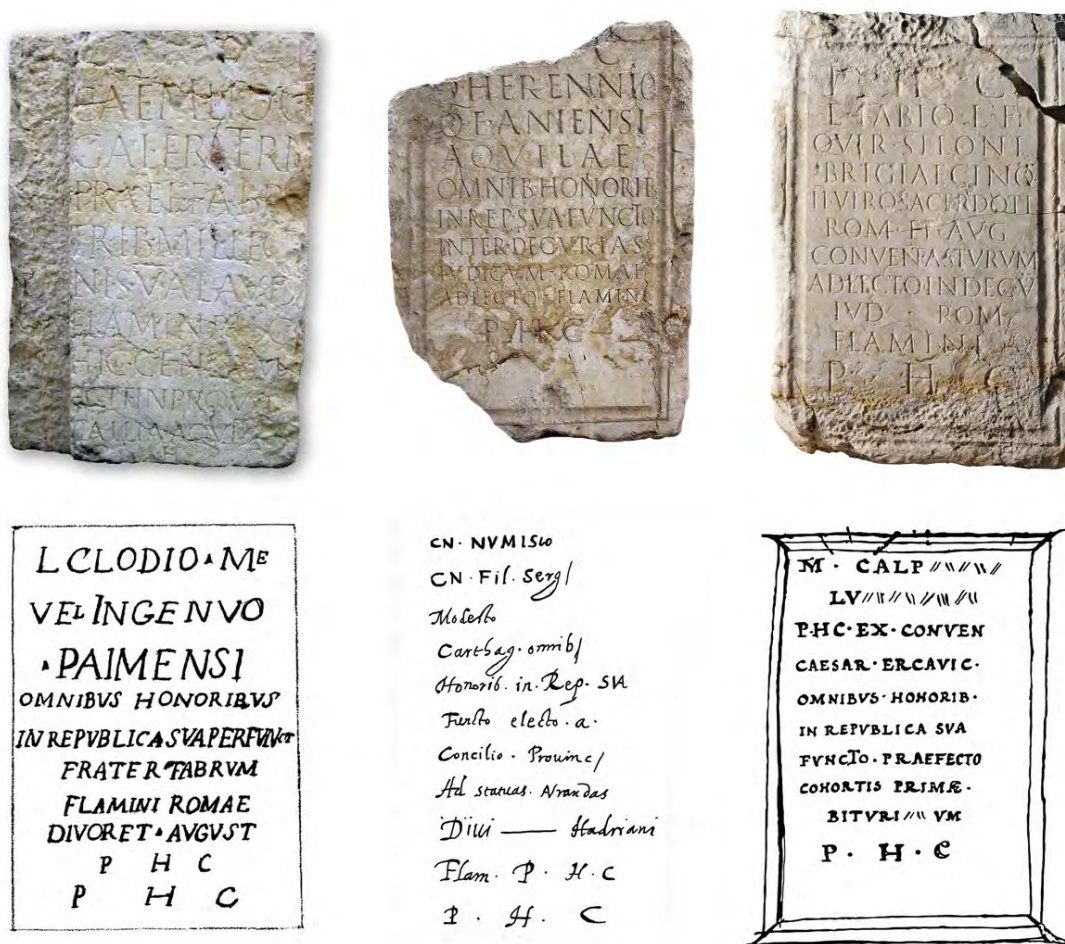 C·AEMILIO·C
GAL·FRATERN
PRAEF·FABR
TRIB·MIL·LEG
NIS·VAL·AVG
FLAMINI
C
T·HERENNIO
Q·F·ANIENSI
AQVILAE
OMNIB·HONORIB
IN·REP·SVA·FVNCTO
INTER·DECVRIAS
IVDICVM·ROMAE
ADLECTO·FLAMINI
P·H·C
P H C
L·FABIO·L·F
QVIR·SILONI
BRIGIAECINO
IIVIRO·SACERDOTI
ROM·ET·AVG
CONVEN·ASTVRVM
ADLECTO·IN·DECV
IVD · ROM
FLAMINI
P H C
L CLODIO · ME
VEL INGENVO
· PAIMENSI
OMNIBVS HONORIBVS
IN REPVBLICA SVA
FRATER FABRVM
FLAMINI ROMAE
DIVORET · AVGVST
P H C
P H C
CN · NVMISIO
CN · Fil. Serg/
Modesto
Carthag. omnib/
Honorib. in. Rep. SVA
Functo electo. a.
Concilio. Provinc/
Ad statuas. Aurandas
Divi — Hadriani
Flam. P. H. C
P. H. C
M · CALP
LV
P·HC·EX·CONVEN
CAESAR·ERCAVIC·
OMNIBVS·HONORIB·
IN REPVBLICA SVA
FVNCTO·PRAEFECTO
COHORTIS PRIMÆ·
BITVRI VM
P · H · C